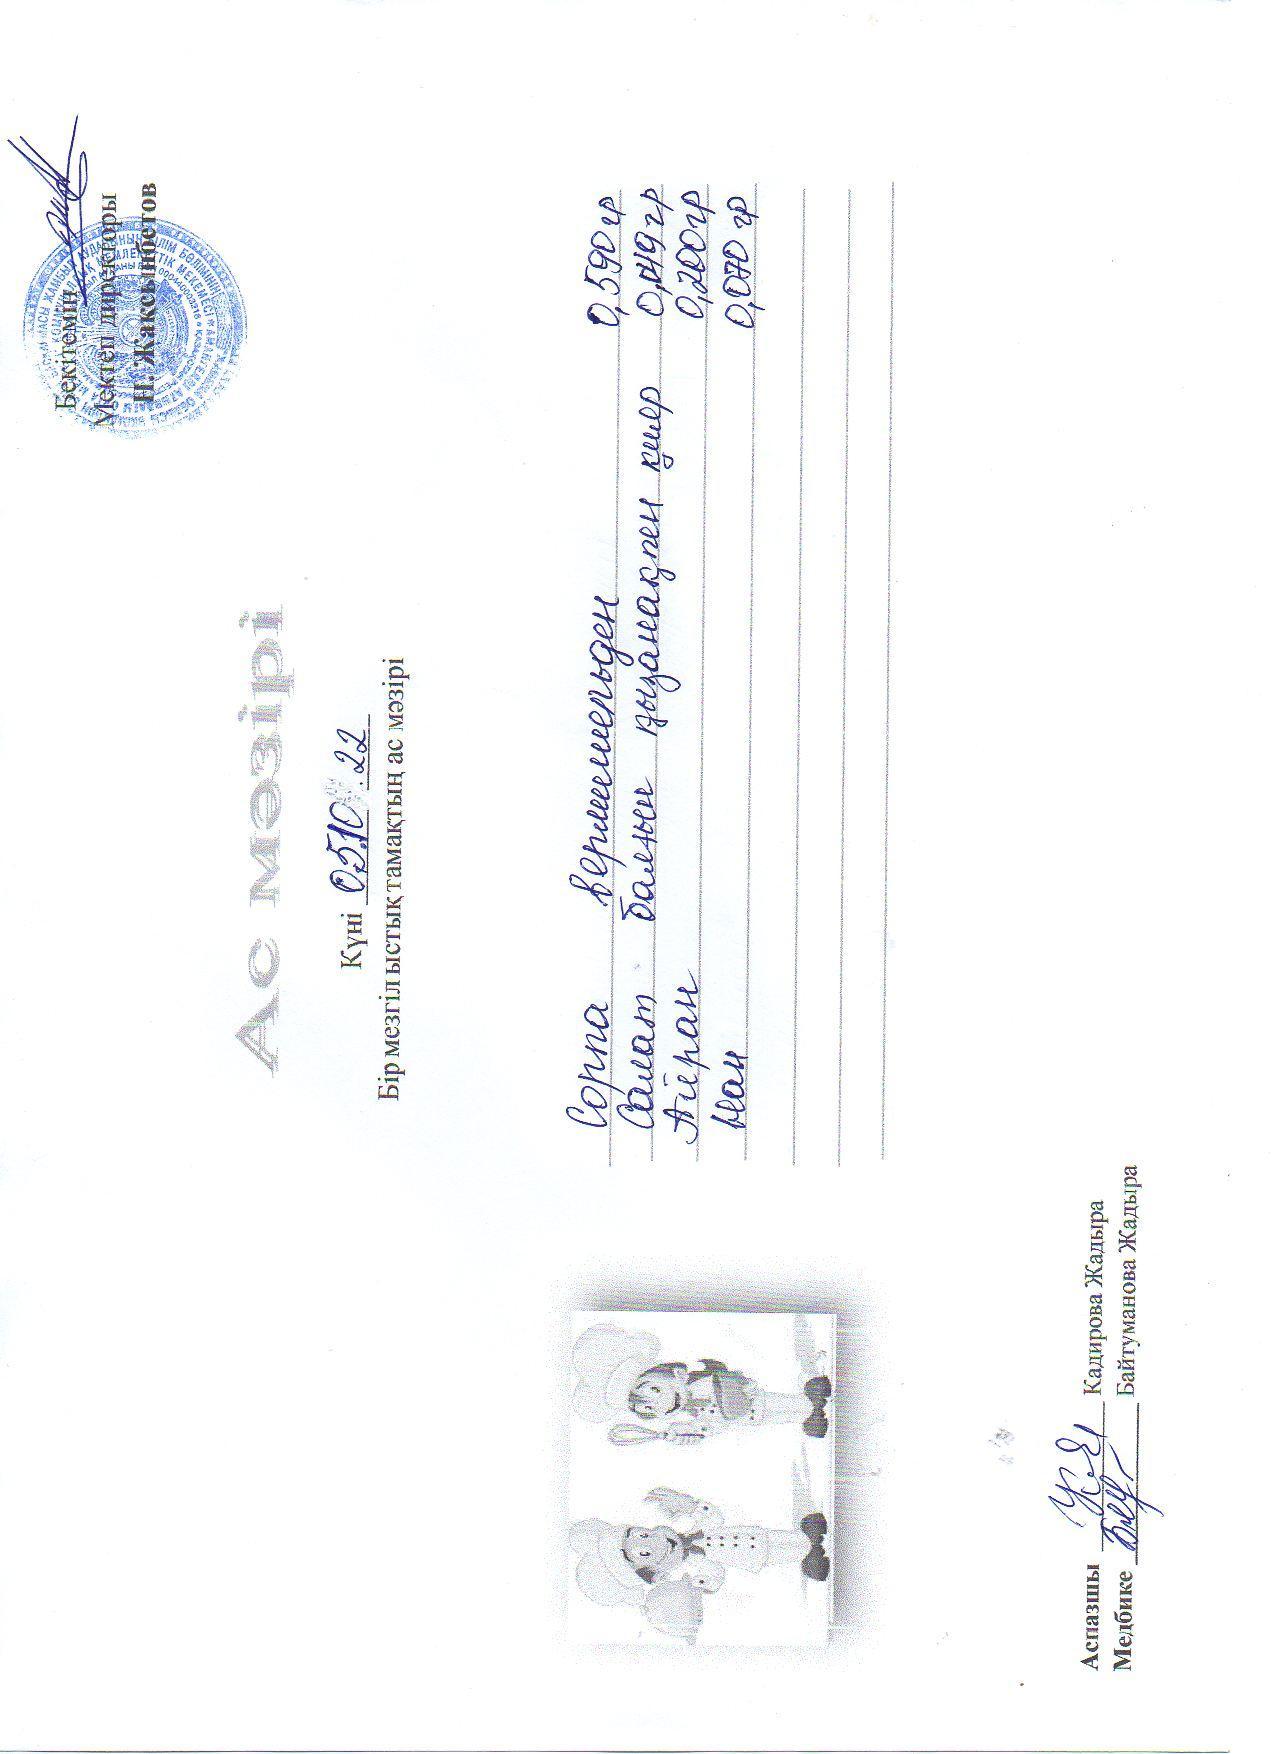 Бекітемін
Мектеп директоры
Н. Жаксынбетов
Ас мәзірі
Күні 05.10.22
Бір мезгіл ыстық тамақтың ас мәзірі
Сорпа вермишельден 0,590 гр
Салат балғын қызанақпен қияр 0,149 гр
Айран 0,200 гр
Нан 0,070 гр
Аспазшы Кадирова Жадыра
Медбике Байтуманова Жадыра